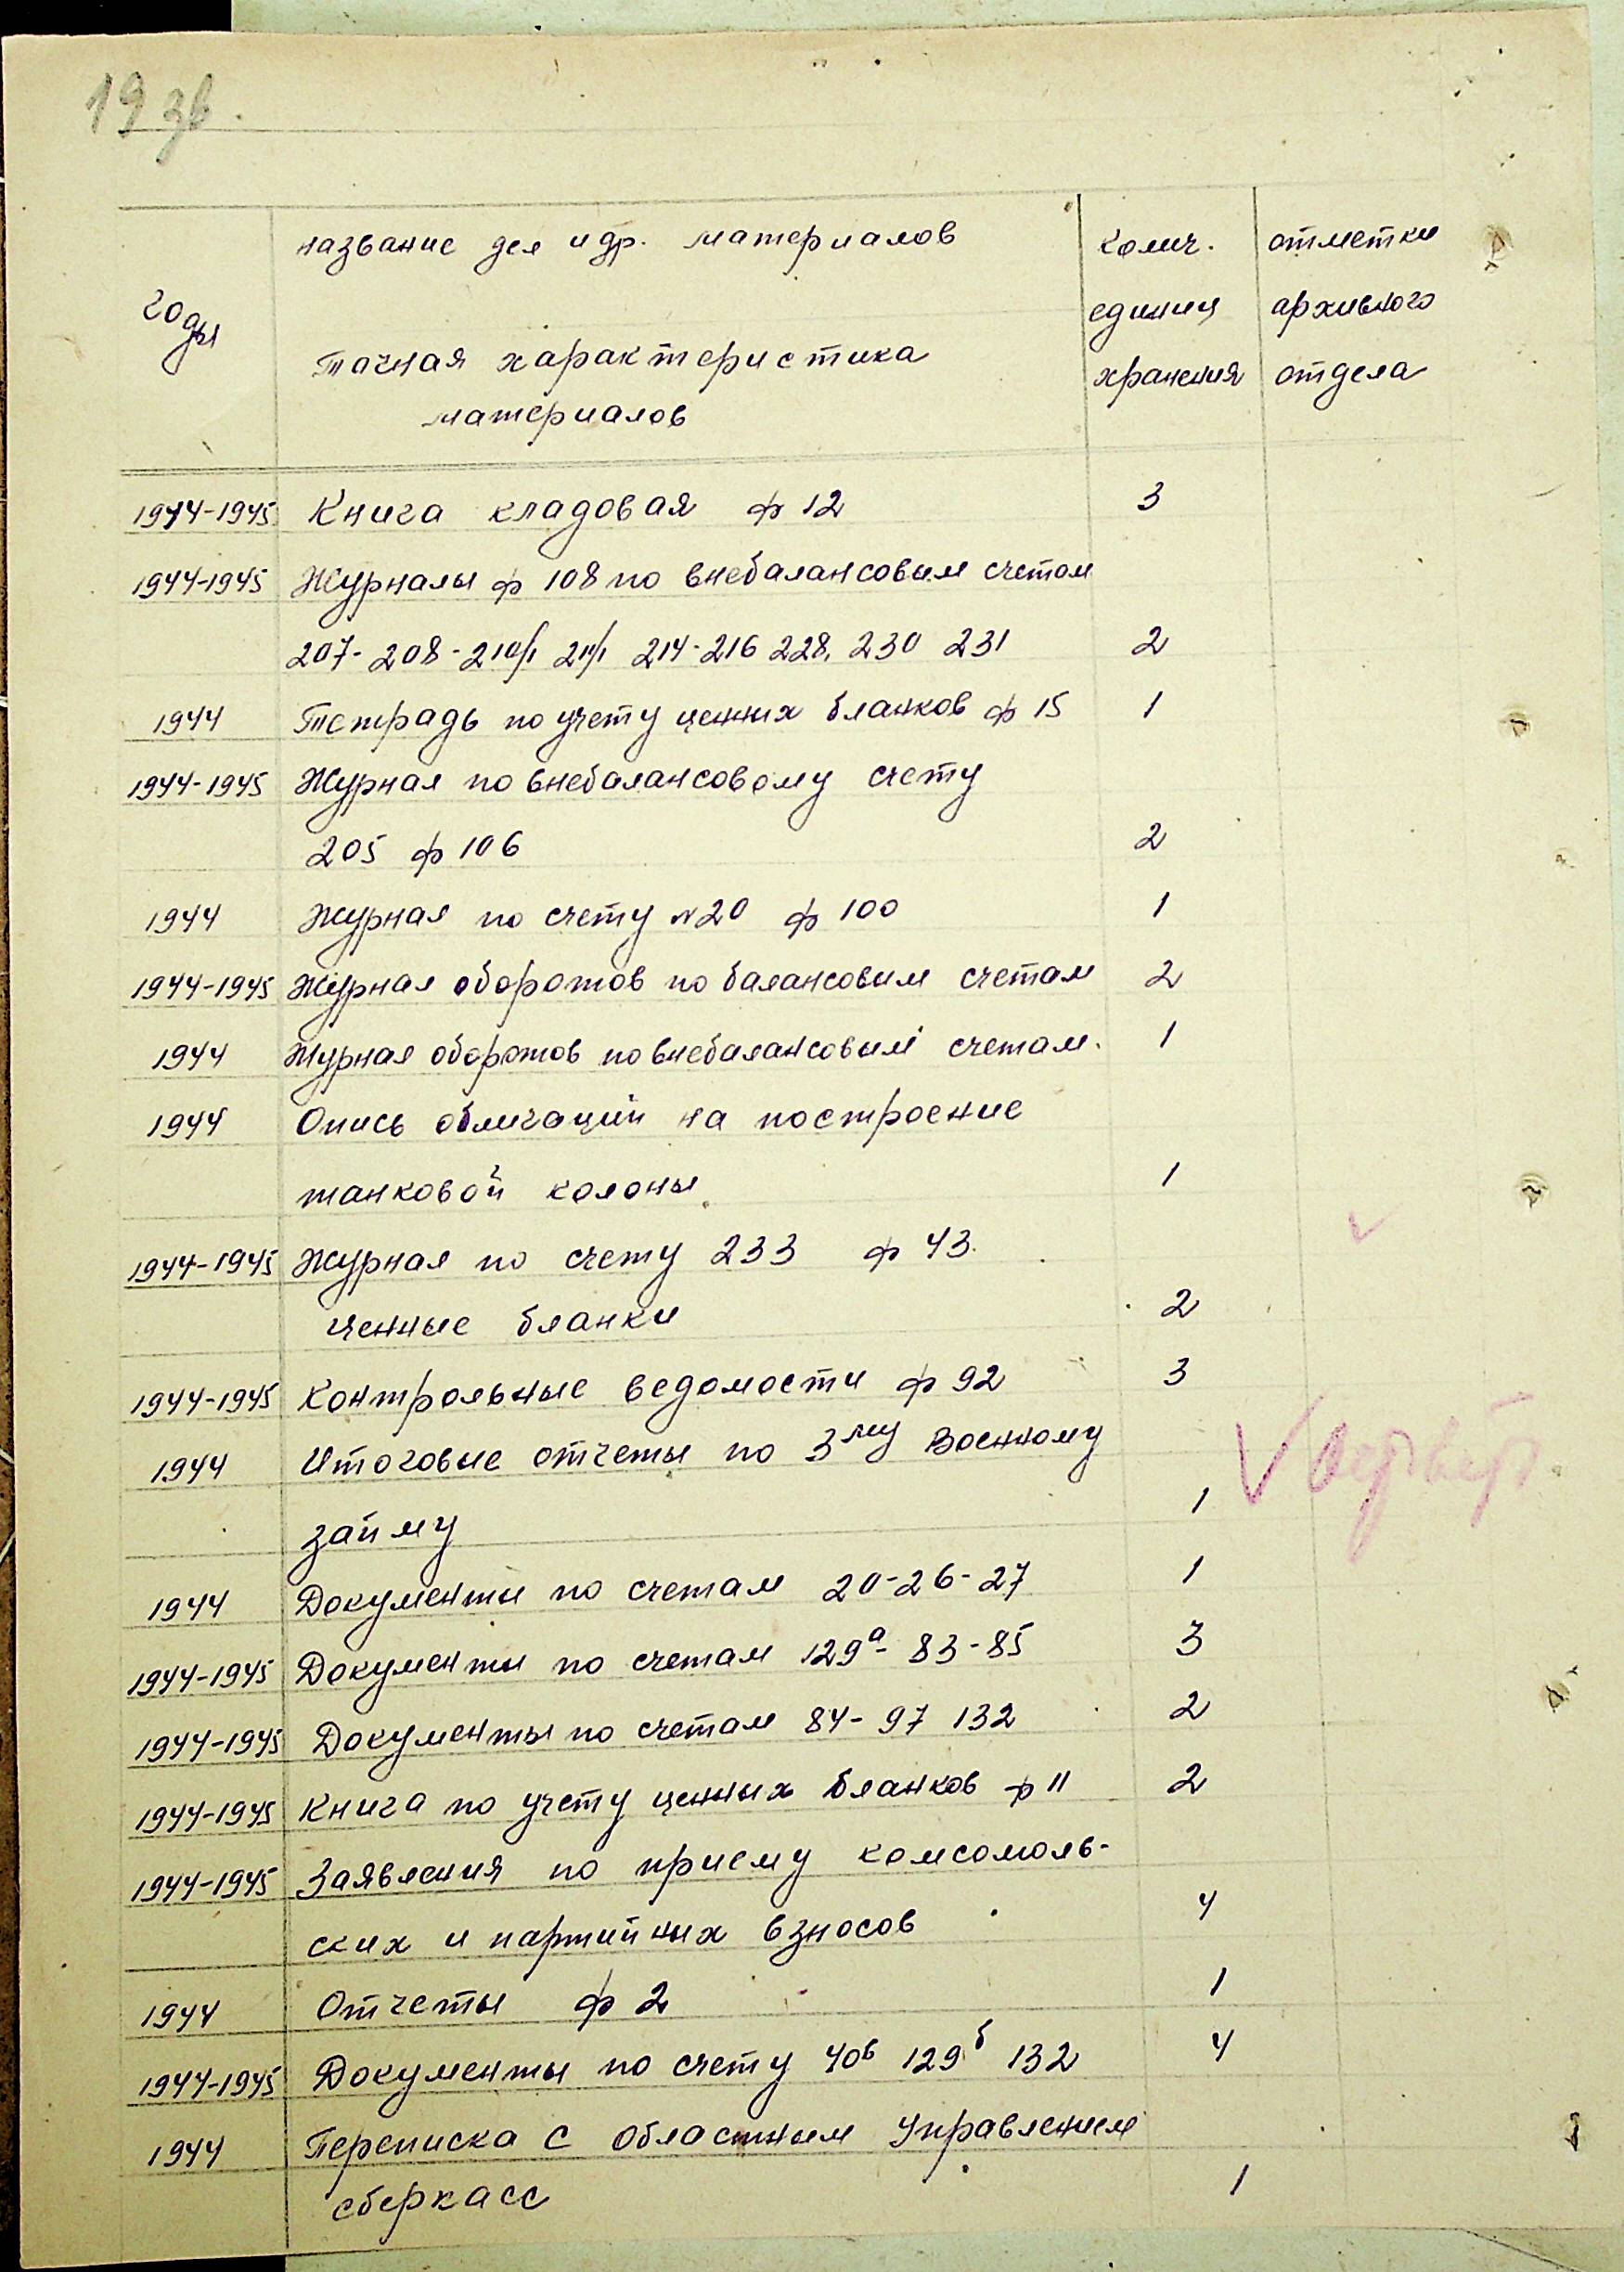 19 зв.
годы
название дел и др. материалов
точная характеристика
материалов
колич.
единиц
хранения
отметки
архивного
отдела
1944-1945 Книга кладовая ф 12 3
1944-1945 Журналы ф 108 по внебалансовым счетам
207-208-210/1 211/1 214-216 228, 230 231 2
1944 Тетрадь по учету ценных бланков ф 15 1
1944-1945 Журнал по внебалансовому счету
205 ф 106 2
1944 Журнал по счету №20 ф 100 1
1944-1945 Журнал оборотов по балансовым счетам 2
1944 Журнал оборотов по внебалансовым счетам. 1
1944 Опись облигаций на построение
танковой колоны 1
1944-1945 Журнал по счету 233 ф 43.
ценные бланки 2
1944-1945 Контрольные ведомости ф 92 3
1944 Итоговые отчеты по 3му Военному
займу 1
1944 Документы по счетам 20-26-27 1
1944-1945 Документы по счетам 129а- 83-85 3
1944-1945 Документы по счетам 84-97 132 2
1944-1945 Книга по учету ценных бланков ф 11 2
1944-1945 Заявления по приему комсомоль-
ских и партийных взносов 4
1944 Отчеты ф 2 1
1944-1945 Документы по счету 40в 129б 132 4
1944 Переписка с Областным Управлением
сберкасс 1